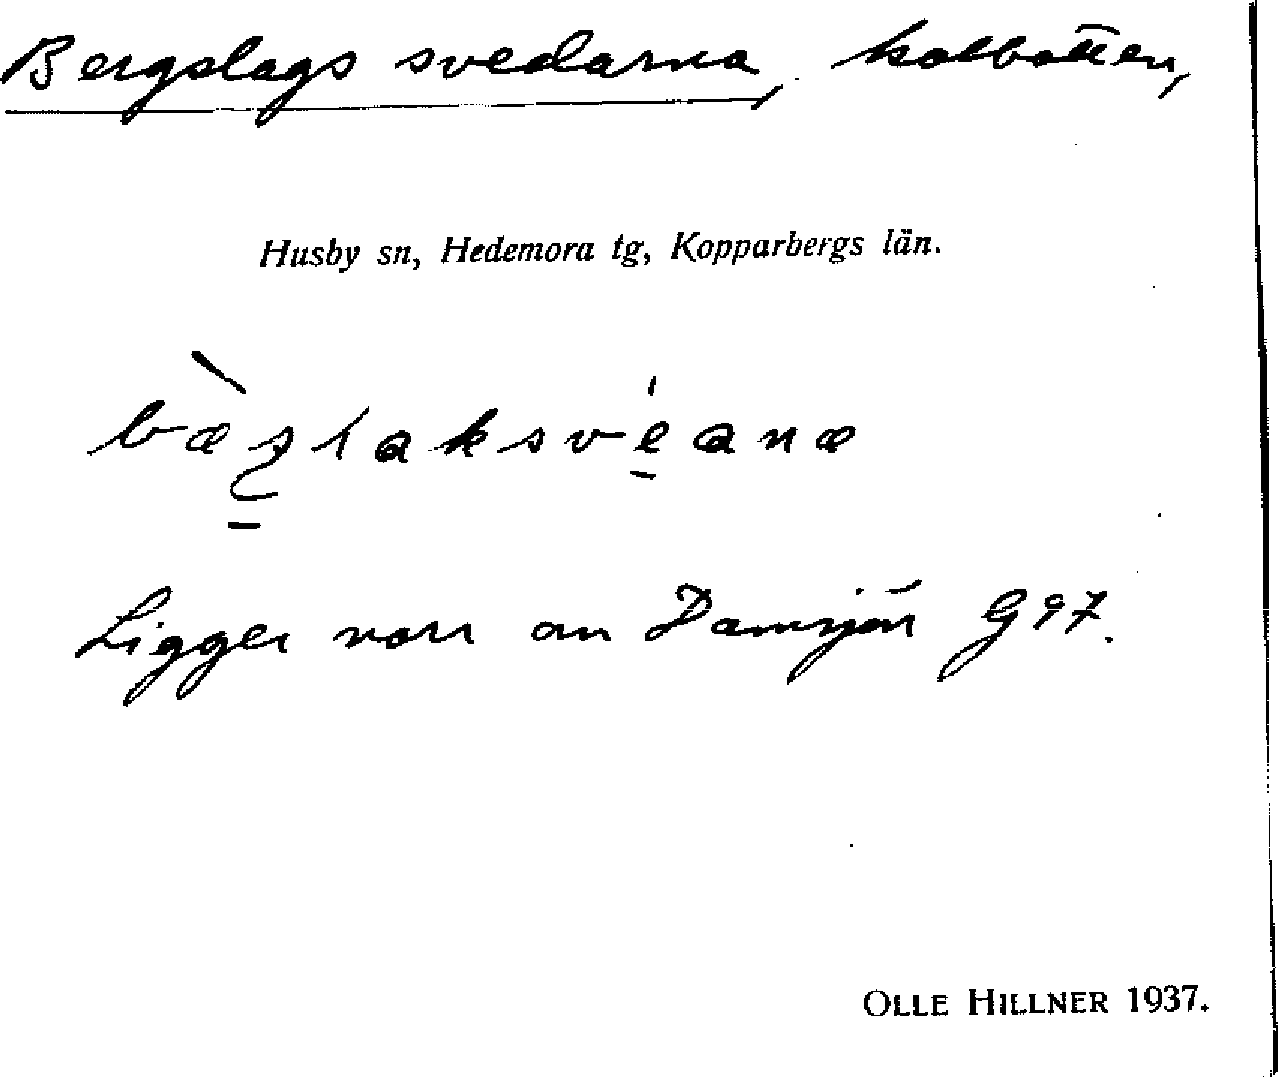 Bergslags svedarna, kolbotten,
Husby sn, Hedemora tg, Kopparbergs län.
Ligger norr om Damsjön G 97.
OLLE HILLNER 1937.